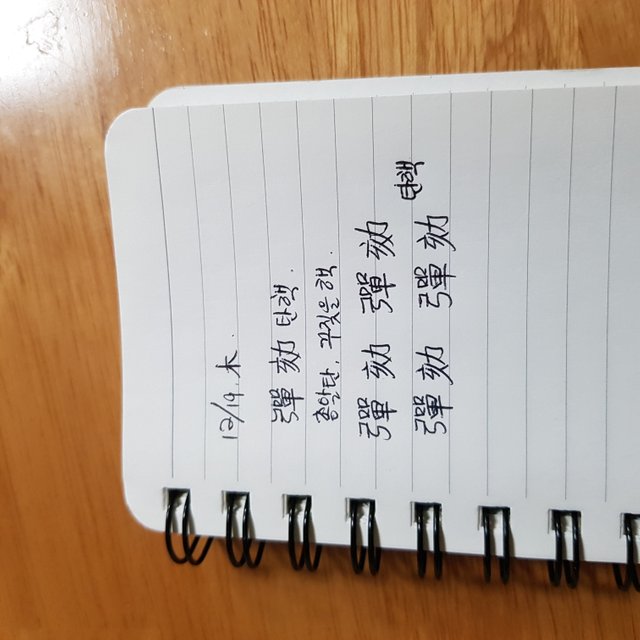 12/19. 木.
彈劾 탄핵.
총알탄, 꾸짖을핵.
彈劾 彈劾
彈劾 彈劾 탄핵